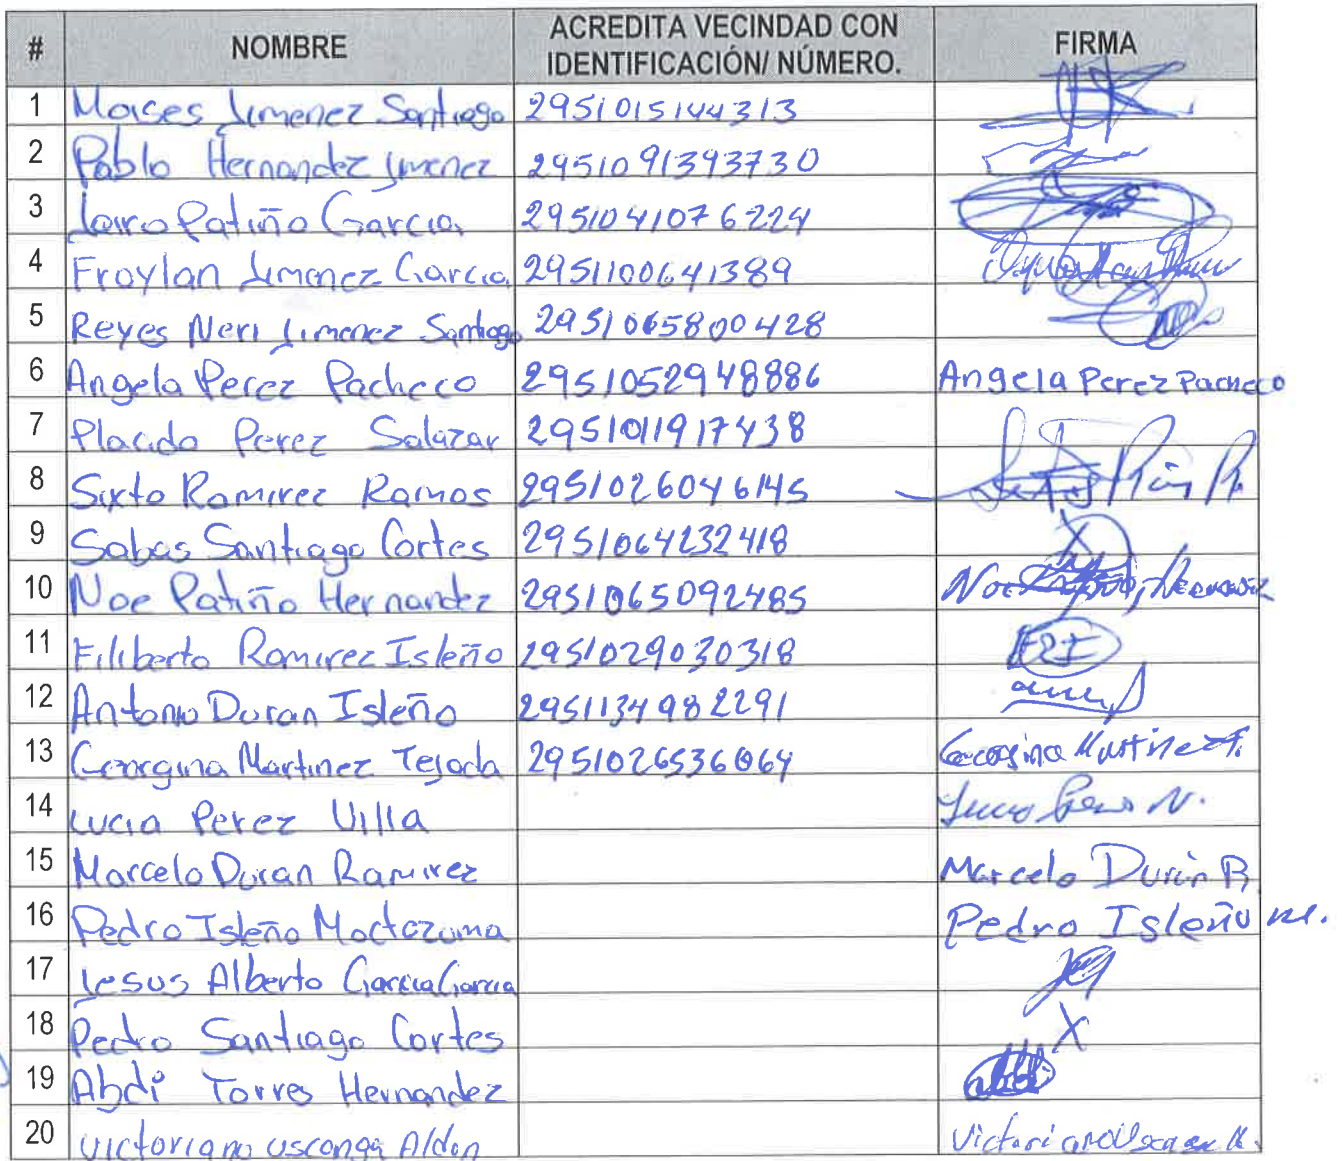 # NOMBRE ACREDITA VECINDAD CON IDENTIFICACIÓN/ NÚMERO. FIRMA
1 Moises Jimenez Santiago 2951015144313
2 Pablo Hernandez Jimenez 2951091393730
3 Jairo Patiño Garcia 2951041076224
4 Froylan Jimenez Garcia 2951100641389
5 Reyes Neri Jimenez Santiago 2951065800428
6 Angela Perez Pacheco 2951052948886 Angela Perez Pacheco
7 Placido Perez Salazar 2951011917438
8 Sixto Ramirez Ramos 2951026046145
9 Sabas Santiago Cortes 2951064232418 X
10 Noe Patiño Hernandez 2951065092485 Noe
11 Filiberto Ramirez Isleño 2951029030318 FRI
12 Antonio Duran Isleño 2951134982291
13 Georgina Martinez Tejada 2951026536064 Georgina Martinez T.
14 Lucia Perez Villa
15 Marcelo Duran Ramirez Marcelo Durán R.
16 Pedro Isleño Moctezuma Pedro Isleño M.
17 Jesus Alberto Garcia Garcia
18 Pedro Santiago Cortes X
19 Abdi Torres Hernandez
20 Victoriano Uscanga Aldan